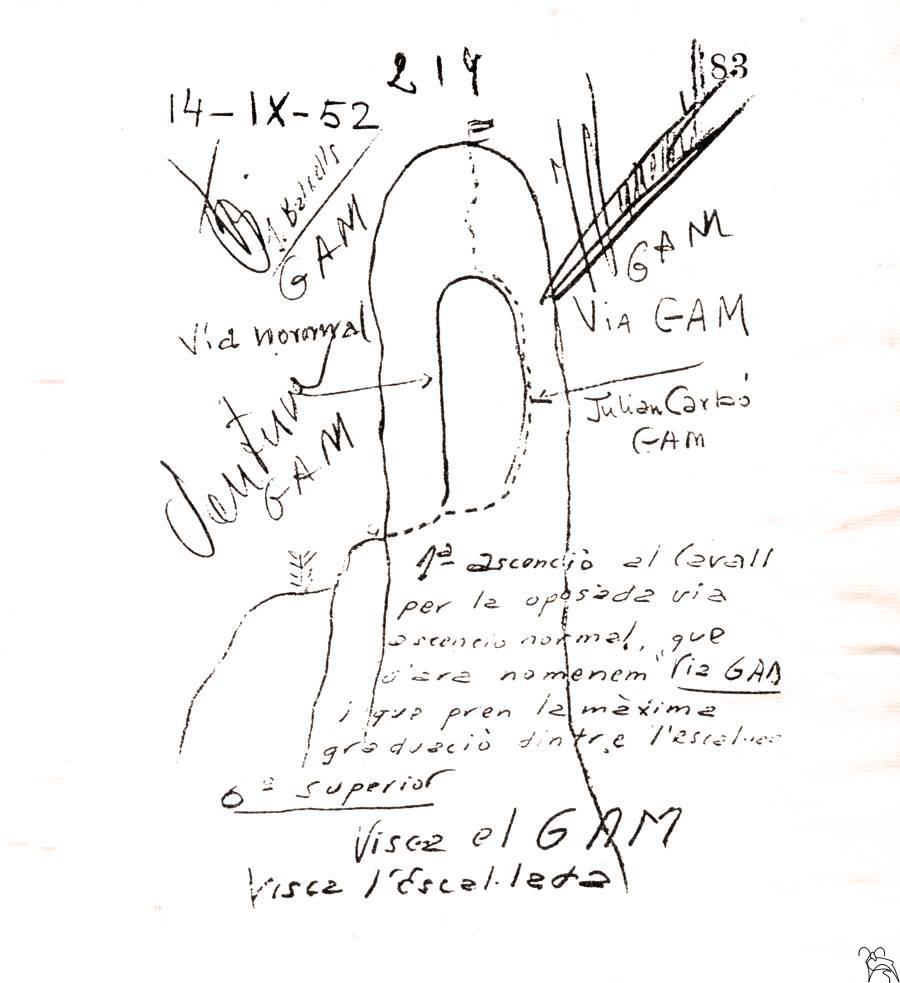 214
83
14-IX-52
J. Balsells
GAM
GAM
Via GAM
Via normal
GAM
Julian Carbó
GAM
1ª ascenciò al Cavall
per la oposada via
ascencio normal, que
d'ara nomenem "Via GAM
i que pren la màxima
graduaciò dintre l'escalada
6º superior
Visca el GAM
Visca l'Escal·lada